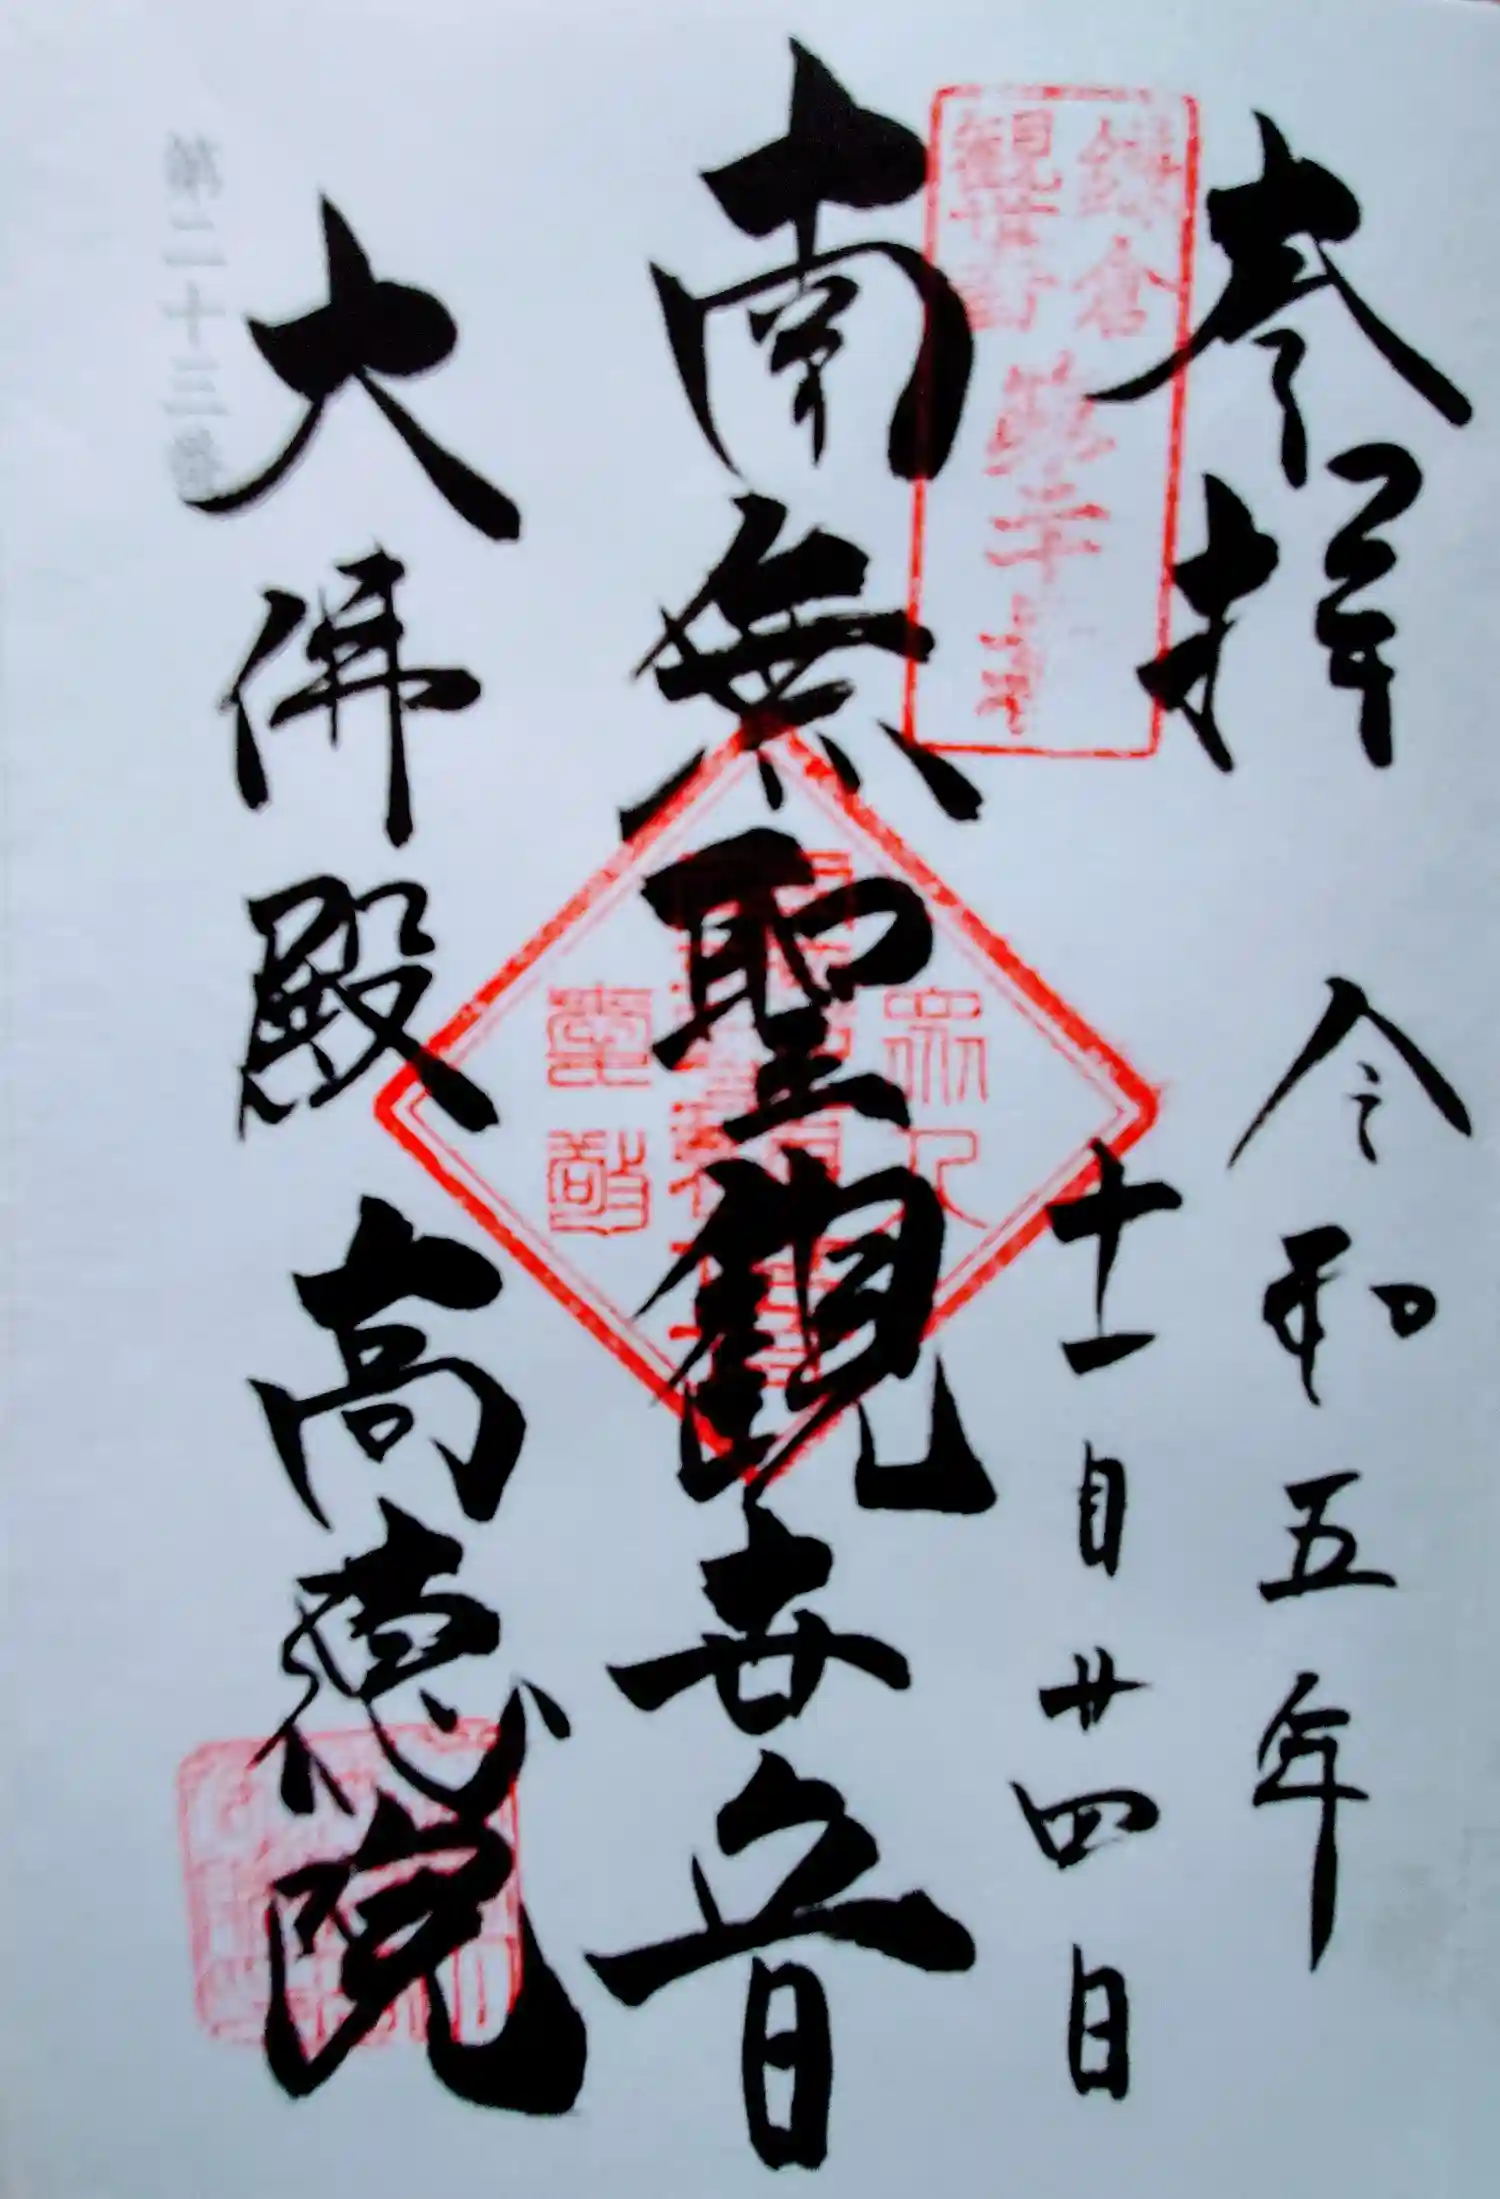 奉拝 令和五年
十一月廿四日
鎌倉
観世音
南無聖観世音
衆人
愛敬
大佛殿 高徳院
第二十三番